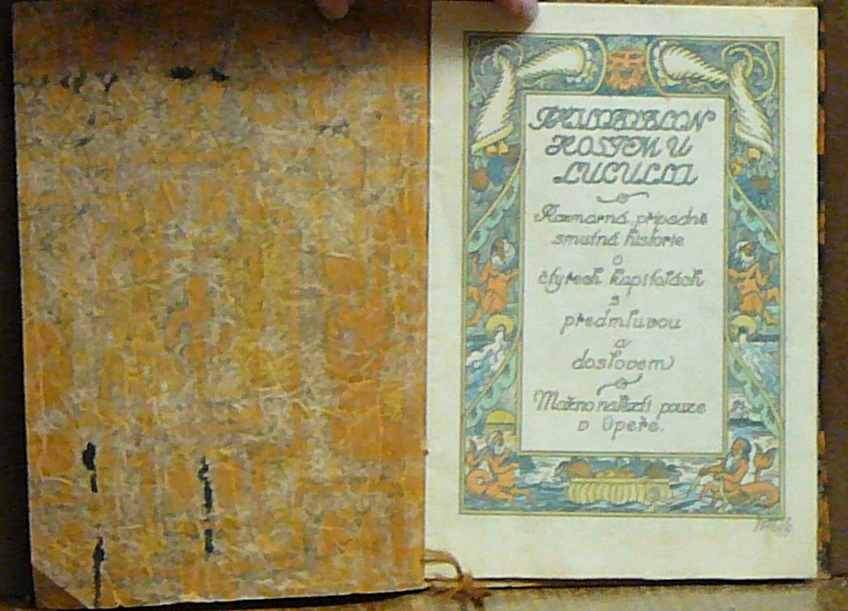 HOSTEM U
LUCULLA
Rozmarná případně
smutná historie
o
čtyrech kapitolách
s
předmluvou
a
doslovem
Možno pouze
v Opeře.